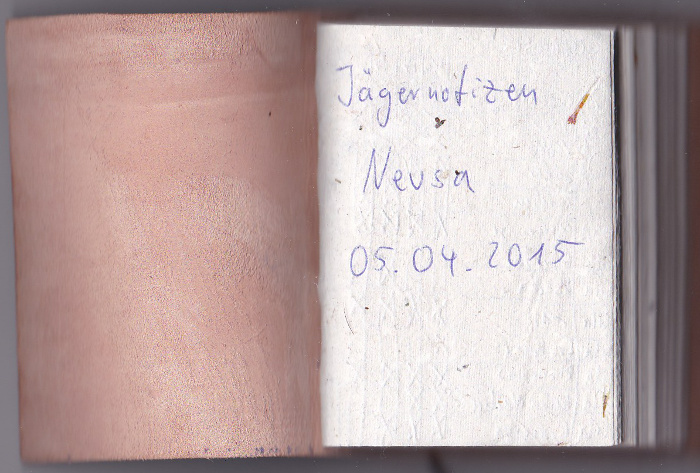 Jägernotizen
Neusa
05.04.2015